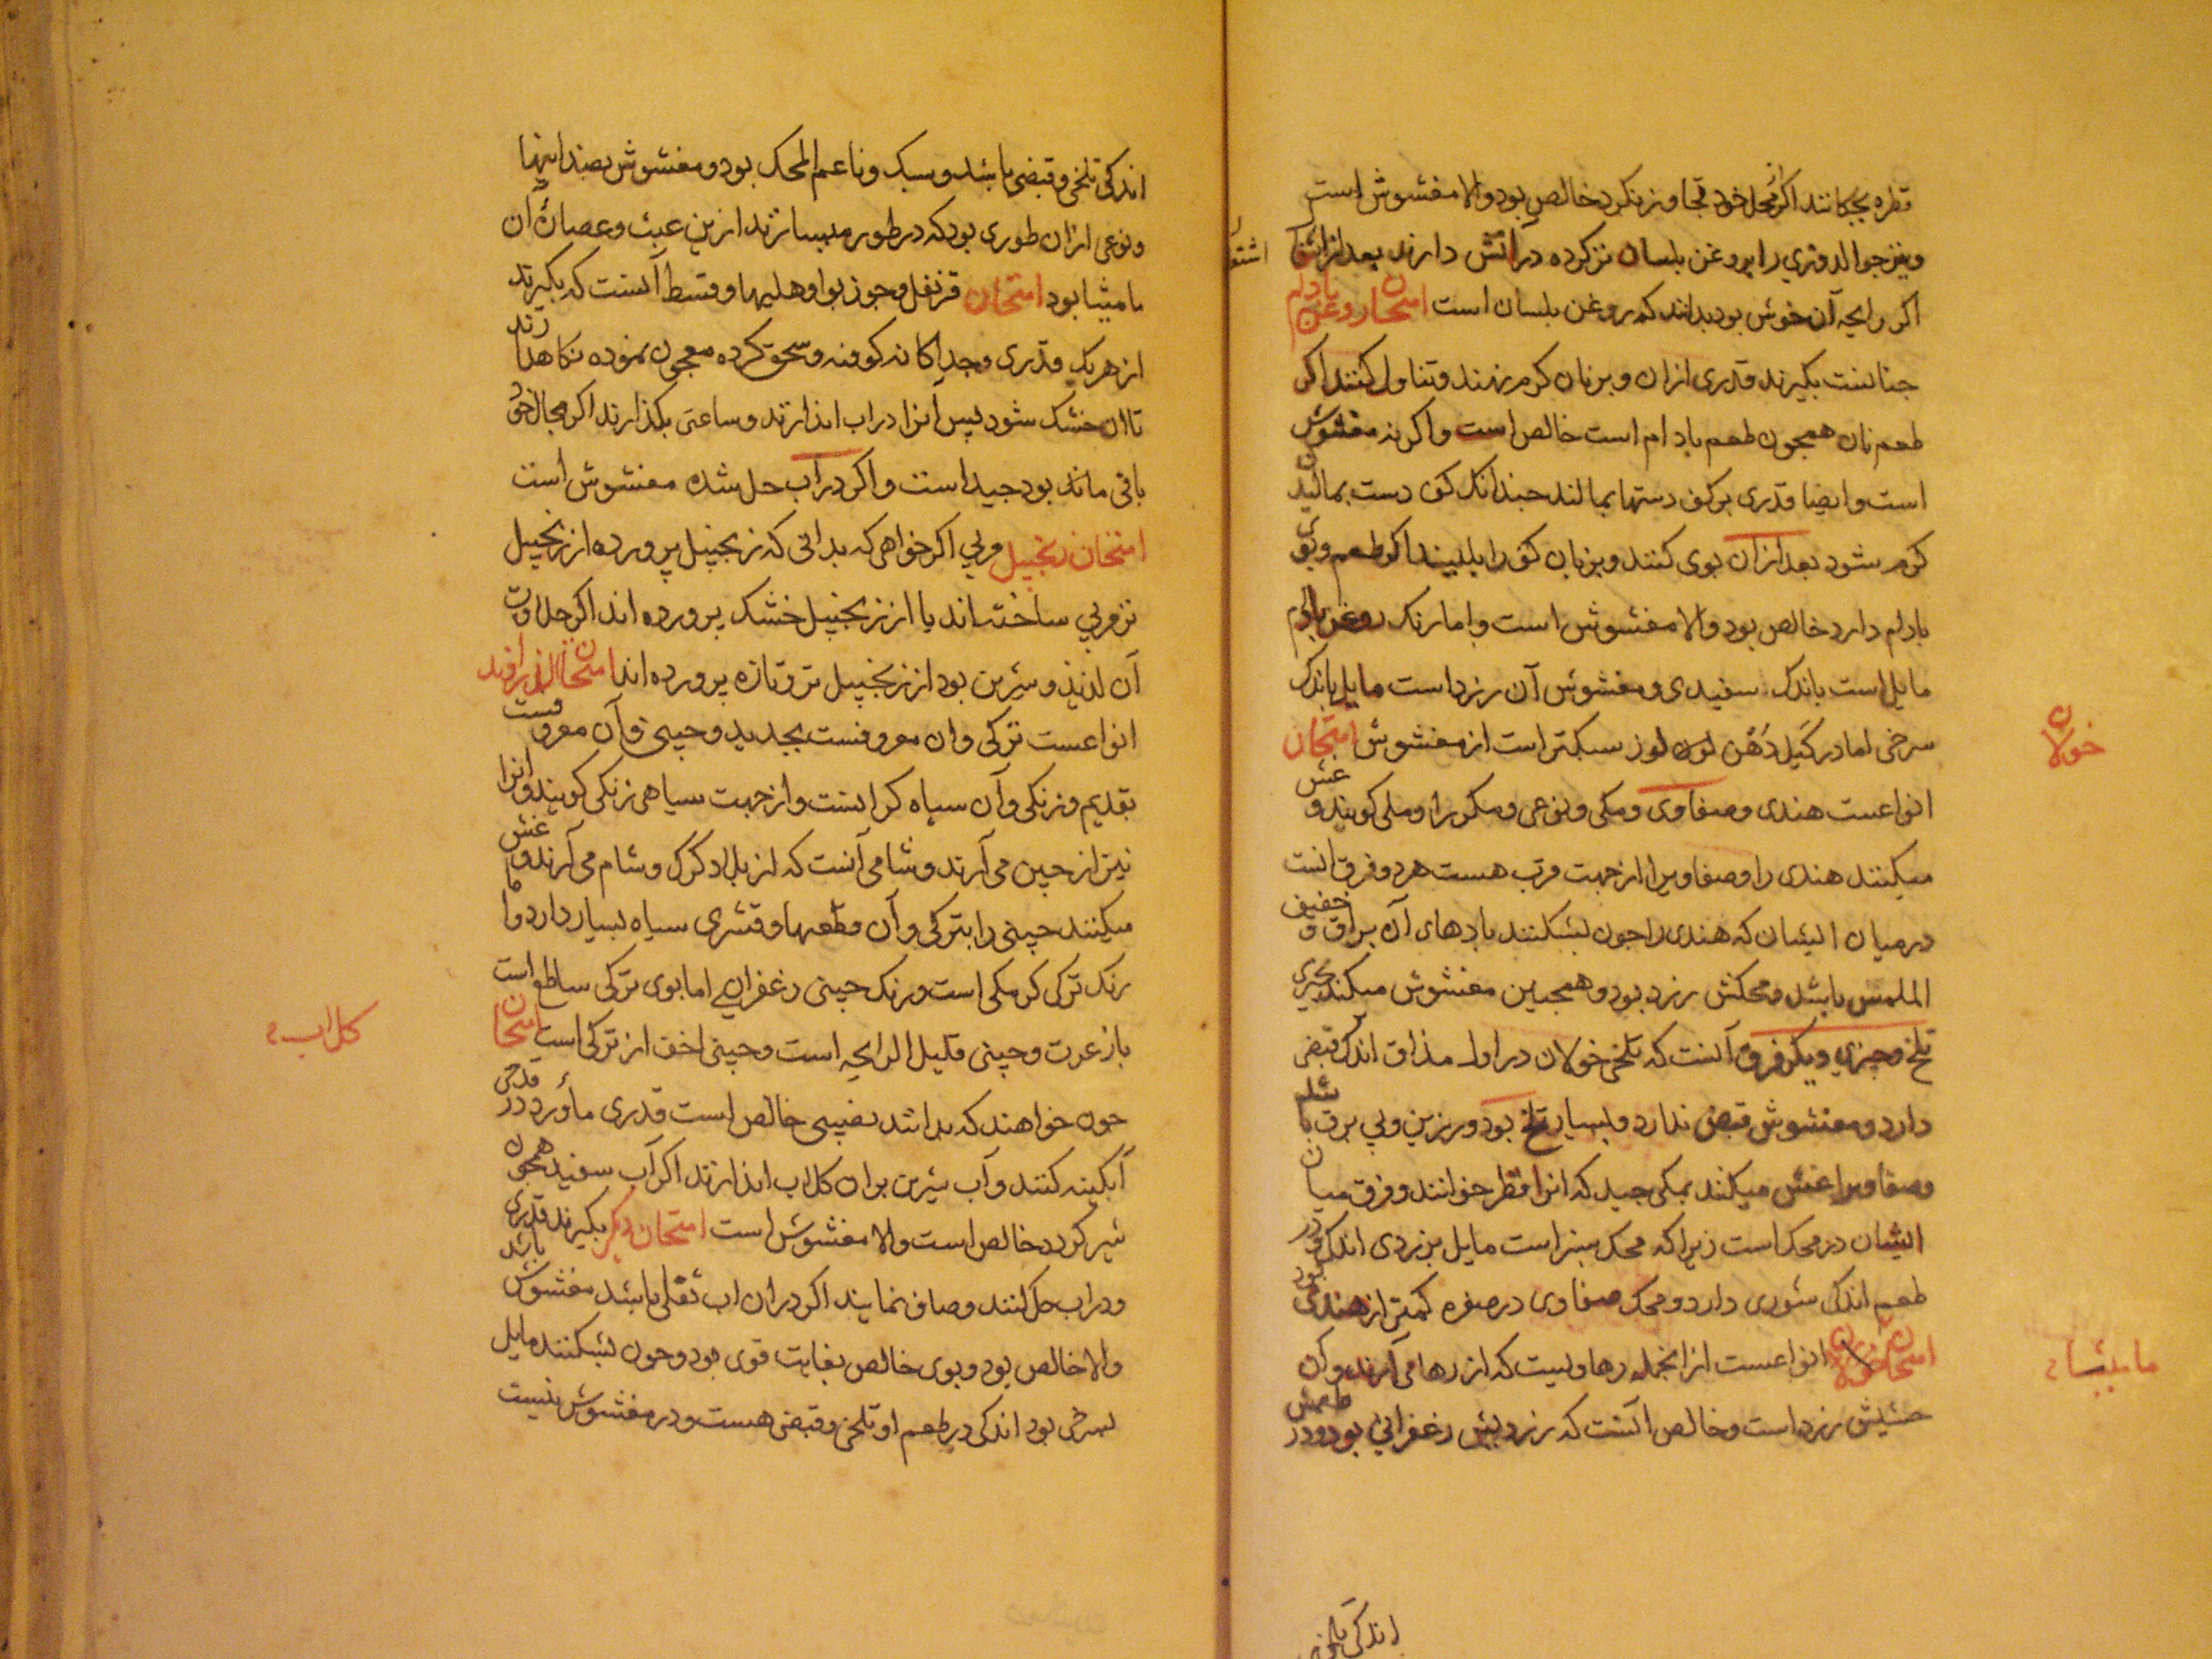 قطره بچکانند اگر از محل خود تجاوز نکرد خالص بود والا مغشوش است
ونیز جوالدوزی را بروغن بلسان تر کرده در آتش دارند بعد از
اگر رایحه آن خوش بود بدانند که روغن بلسان است امتحان روغن بادام
چنانست بگیرند قدری ازان و بر نان گرم نهند و تناول کنند اگر
طعم نان همچون طعم بادام است خالص است واگر نه مغشوش
است وایضا قدری بر کف دستها بمالند چندانک کف دست بمالیدن
گرم شود بعد ازان بوی کنند و بزبان کف را بلیسند اگر طعم وبوی
بادام دارد خالص بود والا مغشوش است واما رنک روغن بادام
مایل است باندک سفیدی ومغشوش آن زرد است مایل باندک
سرخی اما در کیل دهن لوز سبکتر است از مغشوش امتحان
خولان
انواعست هندی وصفاوی ومکی ونوعی ومکر را وملی کویند و غش
میکنند هندی را وصفاویرا از جهت قرب هست هر دو فرق انست
درمیان ایشان که هندی را چون بشکنند بادهای آن براق و خفیف
الملمس باشد ومحکش زرد بود وهمچنین مغشوش میکنند بچیزی
تلخ وچیزی دیکر فرق آنست که تلخی خولان در اول مذاق اندک قبضی
دارد ومغشوش قبض ندارد وبسیار تلخ بود ورزین وبی برق باشد
وصفاویرا غش میکنند بمکی جید که انرا قطر خوانند وفرق میان
ایشان در محک است زیرا که محک سبز است مایل بزردی اندک ودر
طعم اندکی شوری دارد ومحک صفاوی در صفره کمتر از هندی بود
امتحان انواعست از انجمله رهاویست که از رها می آرند وآن
مامیثا
حشیش زرد است وخالص آنست که زرد بیش زعفرانی بود ودر طعمش
اندکی تلخی
اندکی تلخی وقبضی باشد وسبک وناعم المحک بود ومغشوش بضد اینها
ونوعی ازان طوری بود که در طور میسازند از بین عبث وعصاره آن
مامیثا بود امتحان قرنفل وجوز بوا وهلیها وقسط آنست که بگیرند
از هر یک قدری وجداکانه کوفته وسحق کرده معجون نموده نکاهدارند
تا ان خشک شود پس انرا در اب اندازند وساعتی بکذارند اکر بحال خود
باقی مانده بود جید است واکر در آب حل شده مغشوش است
امتحان زنجبیل مربی اکر خواهی که بدانی که زنجبیل پرورده از زنجبیل
تر مربی ساخته اند یا از زنجبیل خشک پرورده اند اکر حلاوت
آن لذیذ وشیرین بود از زنجبیل تر وتازه پرورده اند امتحان
انواعست ترکی وان معروفست بجدید وچینی وآن معروفست
بقدیم وزنکی وآن سیاه کرانست واز جهت سیاهی زنکی کویند وانرا
نیز از چین می آرند وشامی آنست که از بلاد کرک وشام می آرند وغش
میکنند چینی را بترکی وآن قطعها وقشری سیاه بسیار دارد واما
رنک ترکی کرمکی است ورنک چینی زعفرانی اما بوی ترکی ساطع است
بازعرت وچینی قلیل الرایحه است وچینی اخف از ترکی است امتحان
کلاب
چون خواهند که بدانند نصیبی خالص است قدری ماورد در قدحی
آبکینه کنند وآب شیرین بران کلاب اندازند اکر آب سفید همچون
شیر کردد خالص است والا مغشوش است امتحان دیکر بکیرند قدری
ودر اب حل کنند وصاف نمایند اکر دران اب ثقلی باشد مغشوش باشد
والا خالص بود وبوی خالص بغایت قوی بود وچون بشکنند مایل
بسرخی بود اندکی در طعم او تلخی وقبض هست ودر مغشوش نیست